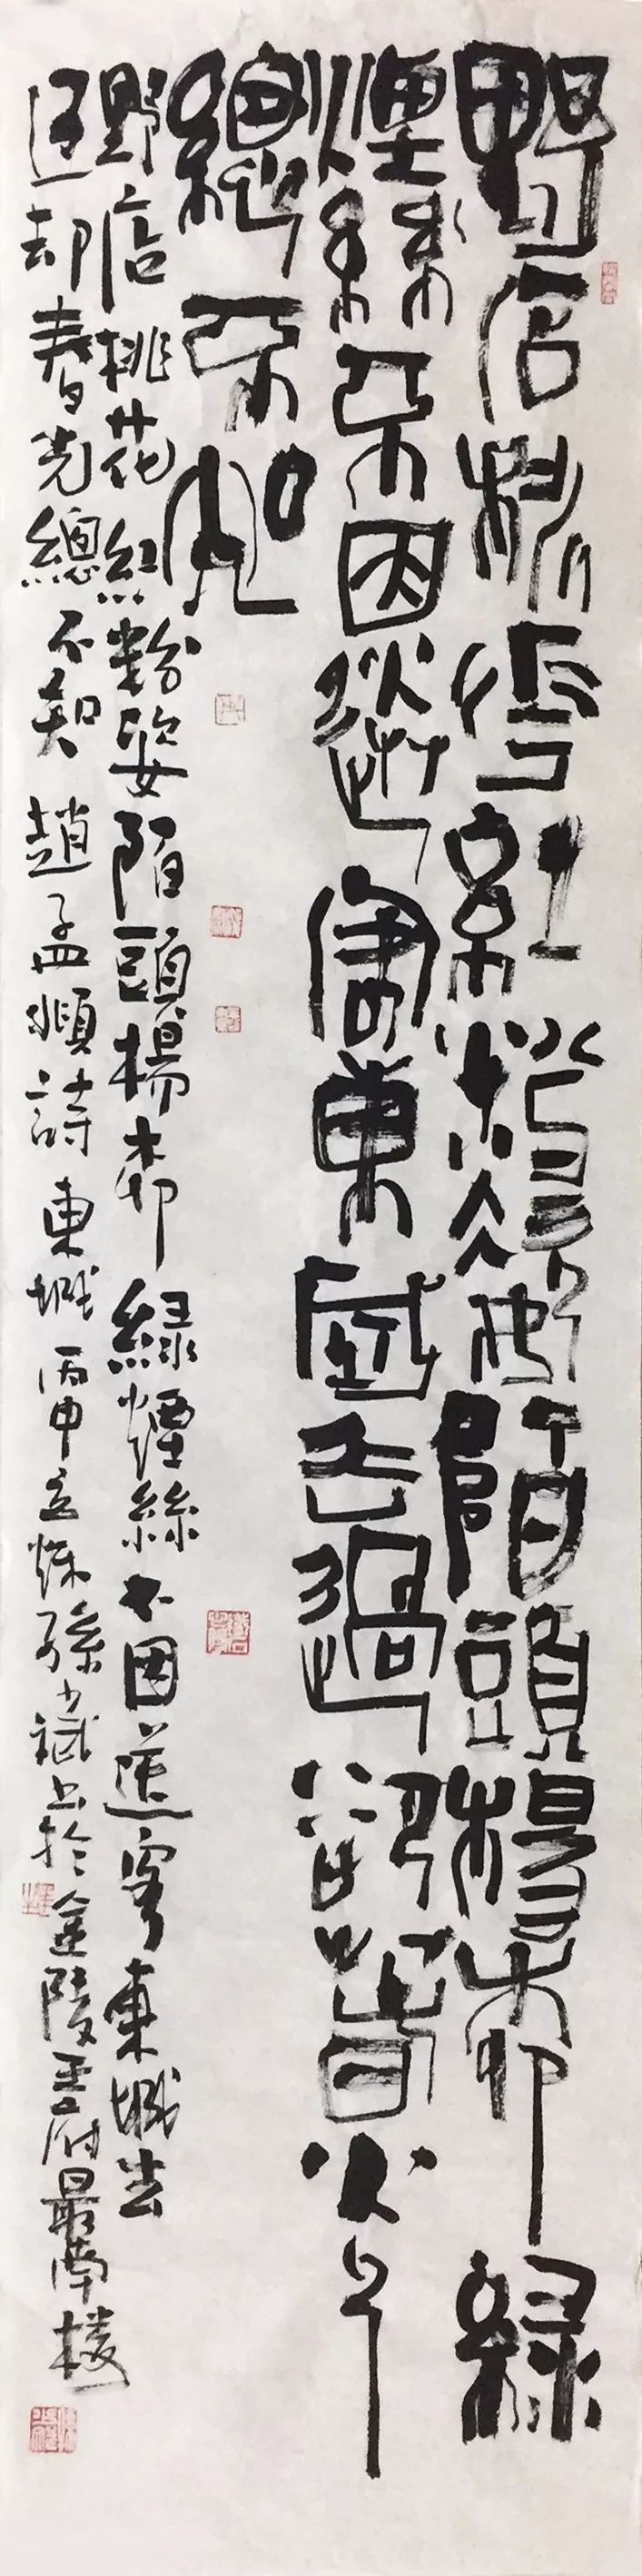 野店桃花紅粉姿陌頭楊柳綠
煙絲不因送客東城去過卻春光
總不知
野店桃花紅粉姿陌頭楊柳綠煙絲不因送客東城去
過却春光總不知 趙孟頫詩 東城 丙申立秋 孫少斌书於金陵王府最南樓